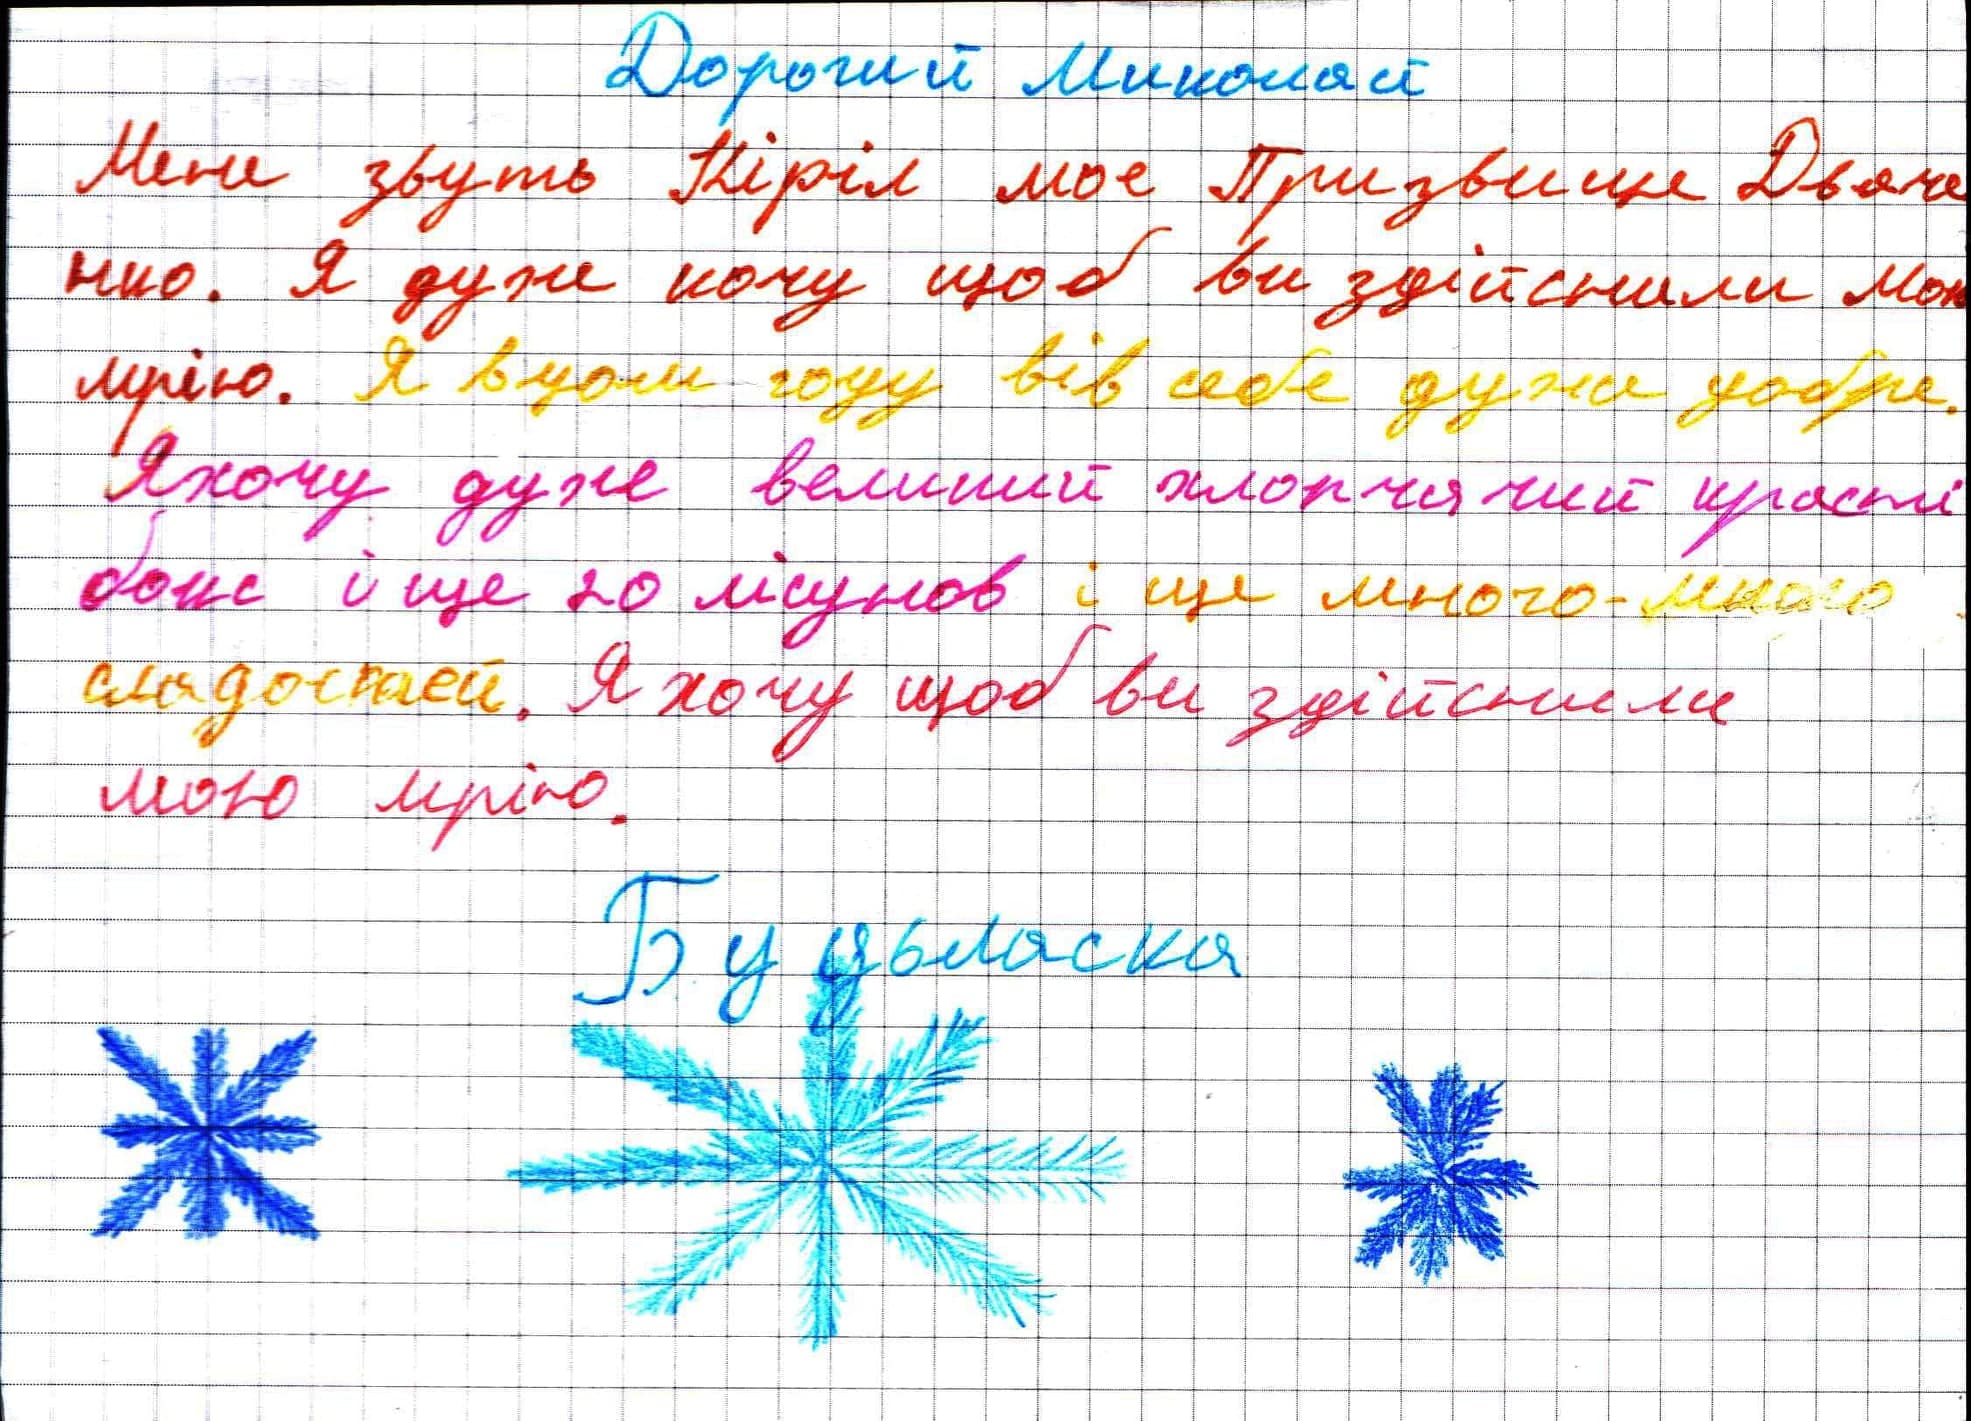 Дорогий Миколай
Мене звуть Кіріл моє Призвище Двяче
нко. Я дуже хочу щоб ви здійснили мою
мрію. Я вцом году вів себе дуже добре.
Я хочу дуже великий хлопчячий красті
бокс і ще 20 лісунов і ще много-много
сладостей. Я хочу щоб ви здійснили
мою мрію.
Будьласка